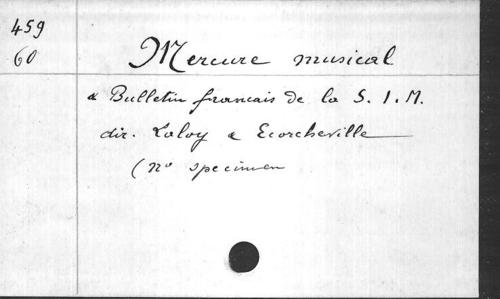 459
60
Mercure musical
& Bulletin français de la S. I. M.
dir. Laloy & Ecorcheville
(no specimen